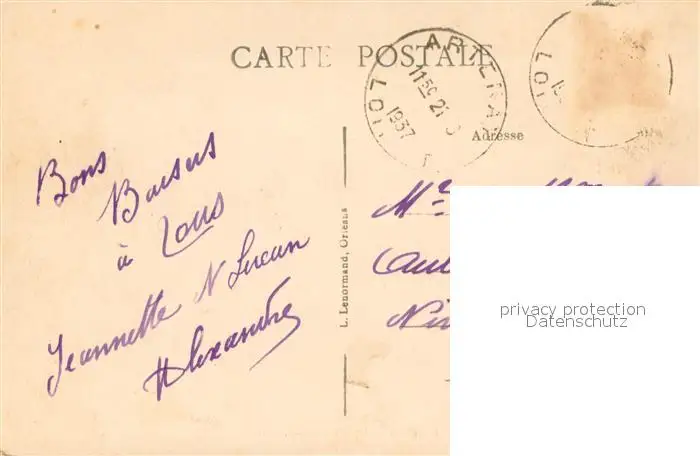 CARTE POSTALE
ARTENAY
LOI
11 50
21
1937
LOI
Adresse
Bons
Baisers
à Tous
Jeannette N Lucien
Alexandre
L. Lenormand, Orleans
privacy protection
Datenschutz